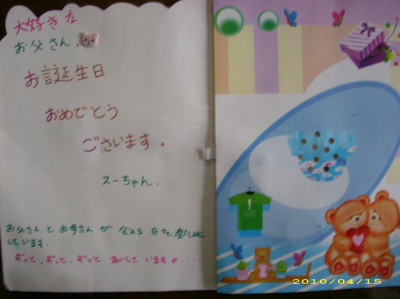 大好きな
お父さん、
お誕生日
おめでとう
ございます。
スーちゃん.
お父さんとお母さんが会える日を楽しみに
しています.
ずっと、ずっと、ずっと あいしています
2010/04/15